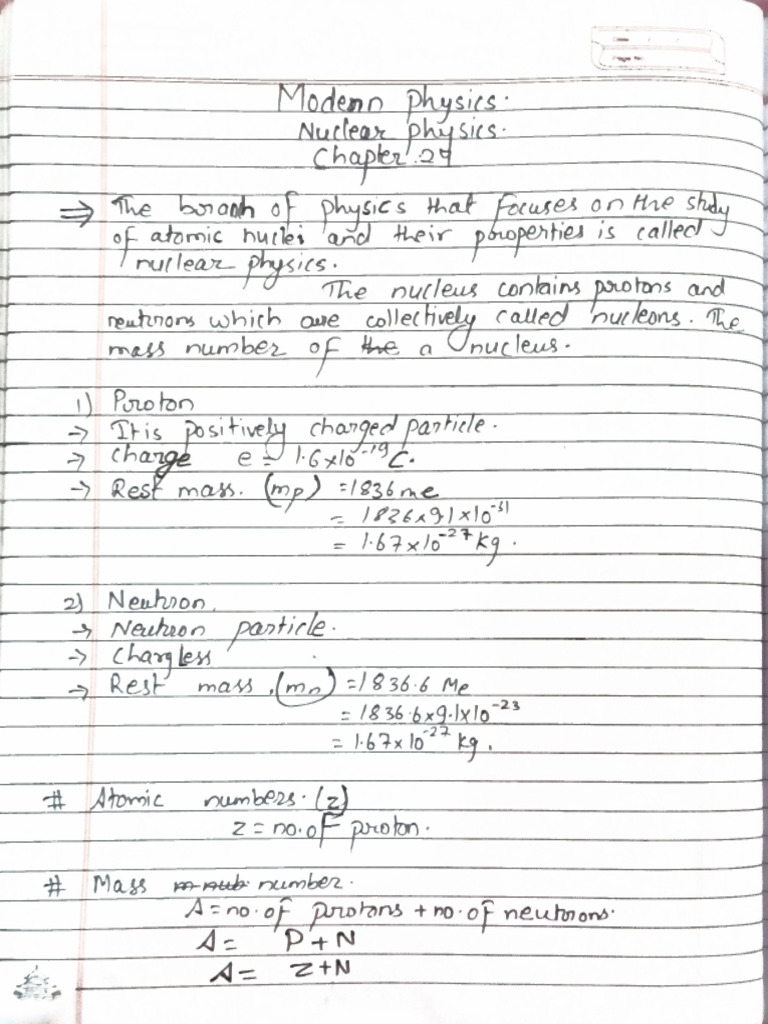 Modern Physics.
Nuclear physics.
Chapter 27
⇒ The branch of physics that focuses on the study
of atomic nuclei and their properties is called
nuclear physics.
The nucleus contains protons and
neutrons which are collectively called nucleons. The
mass number of the a nucleus.
1) Proton
→ It is positively charged particle.
→ Charge e = 1.6×10⁻¹⁹ C.
→ Rest mass. (mp) = 1836 me
= 1836×9.1×10⁻³¹
= 1.67×10⁻²⁷ kg.
2) Neutron.
→ Neutron particle.
→ Chargless
→ Rest mass. (mn) = 1836.6 Me
= 1836.6×9.1×10⁻²³
= 1.67×10⁻²⁷ kg.
# Atomic numbers. (z)
z = no. of proton.
# Mass number.
A = no. of protons + no. of neutrons.
A = P + N
A = Z + N